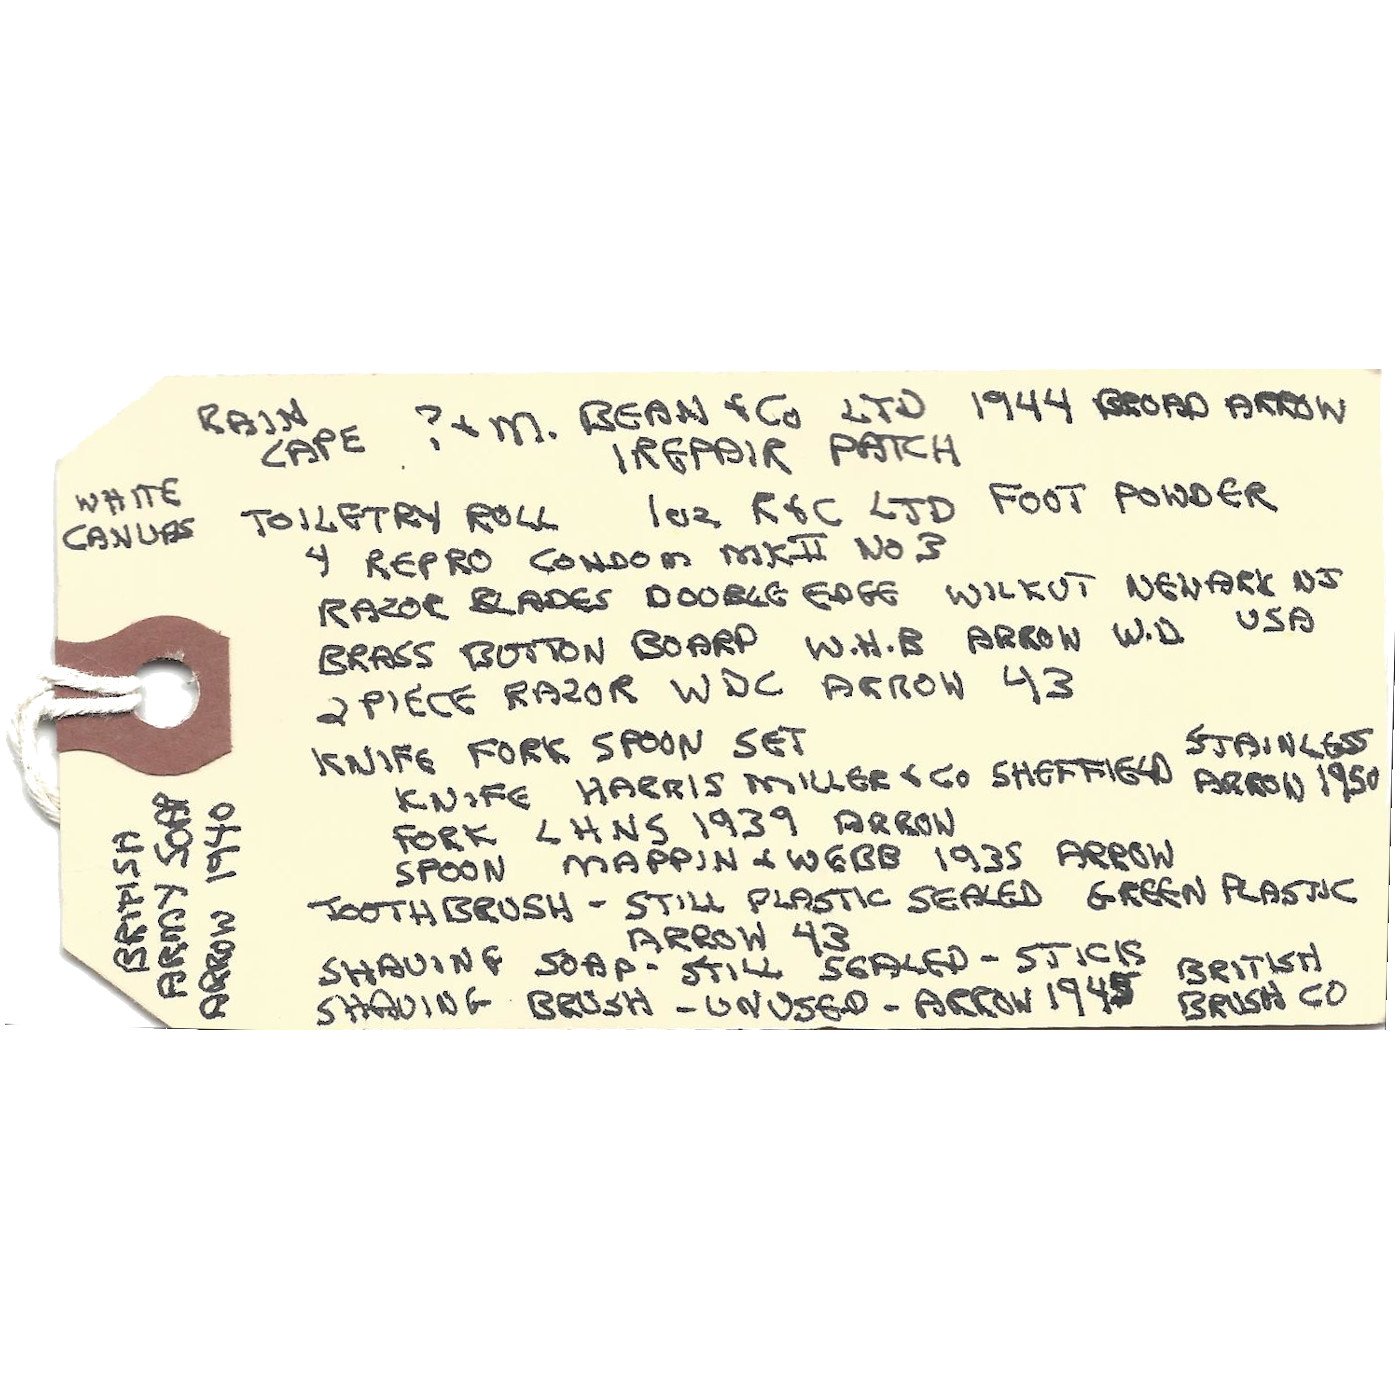 RAIN CAPE ? & M. BEAN & Co LTD 1944 BROAD ARROW
1 REPAIR PATCH
WHITE CANVAS TOILETRY ROLL 1oz R&C LTD FOOT POWDER
4 REPRO CONDOM MKII NO 3
RAZOR BLADES DOUBLE EDGE WILKUT NEWARK NJ USA
BRASS BUTTON BOARD W.H.B ARROW W.D.
2 PIECE RAZOR WDC ARROW 43
KNIFE FORK SPOON SET
KNIFE HARRIS MILLER & CO SHEFFIELD STAINLESS ARROW 1950
FORK LHNS 1939 ARROW
SPOON MAPPIN & WEBB 1935 ARROW
TOOTHBRUSH - STILL PLASTIC SEALED GREEN PLASTIC
ARROW 43
SHAVING SOAP - STILL SEALED - STICK
SHAVING BRUSH - UNUSED - ARROW 1945 BRITISH BRUSH CO
BRITISH
ARMY SOAP
ARROW 1940